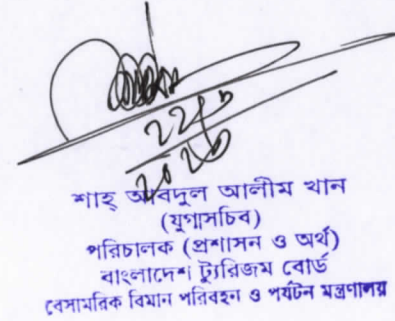 শাহ্ আবদুল আলীম খান
(যুগ্মসচিব)
পরিচালক (প্রশাসন ও অর্থ)
বাংলাদেশ ট্যুরিজম বোর্ড
বেসামরিক বিমান পরিবহন ও পর্যটন মন্ত্রণালয়